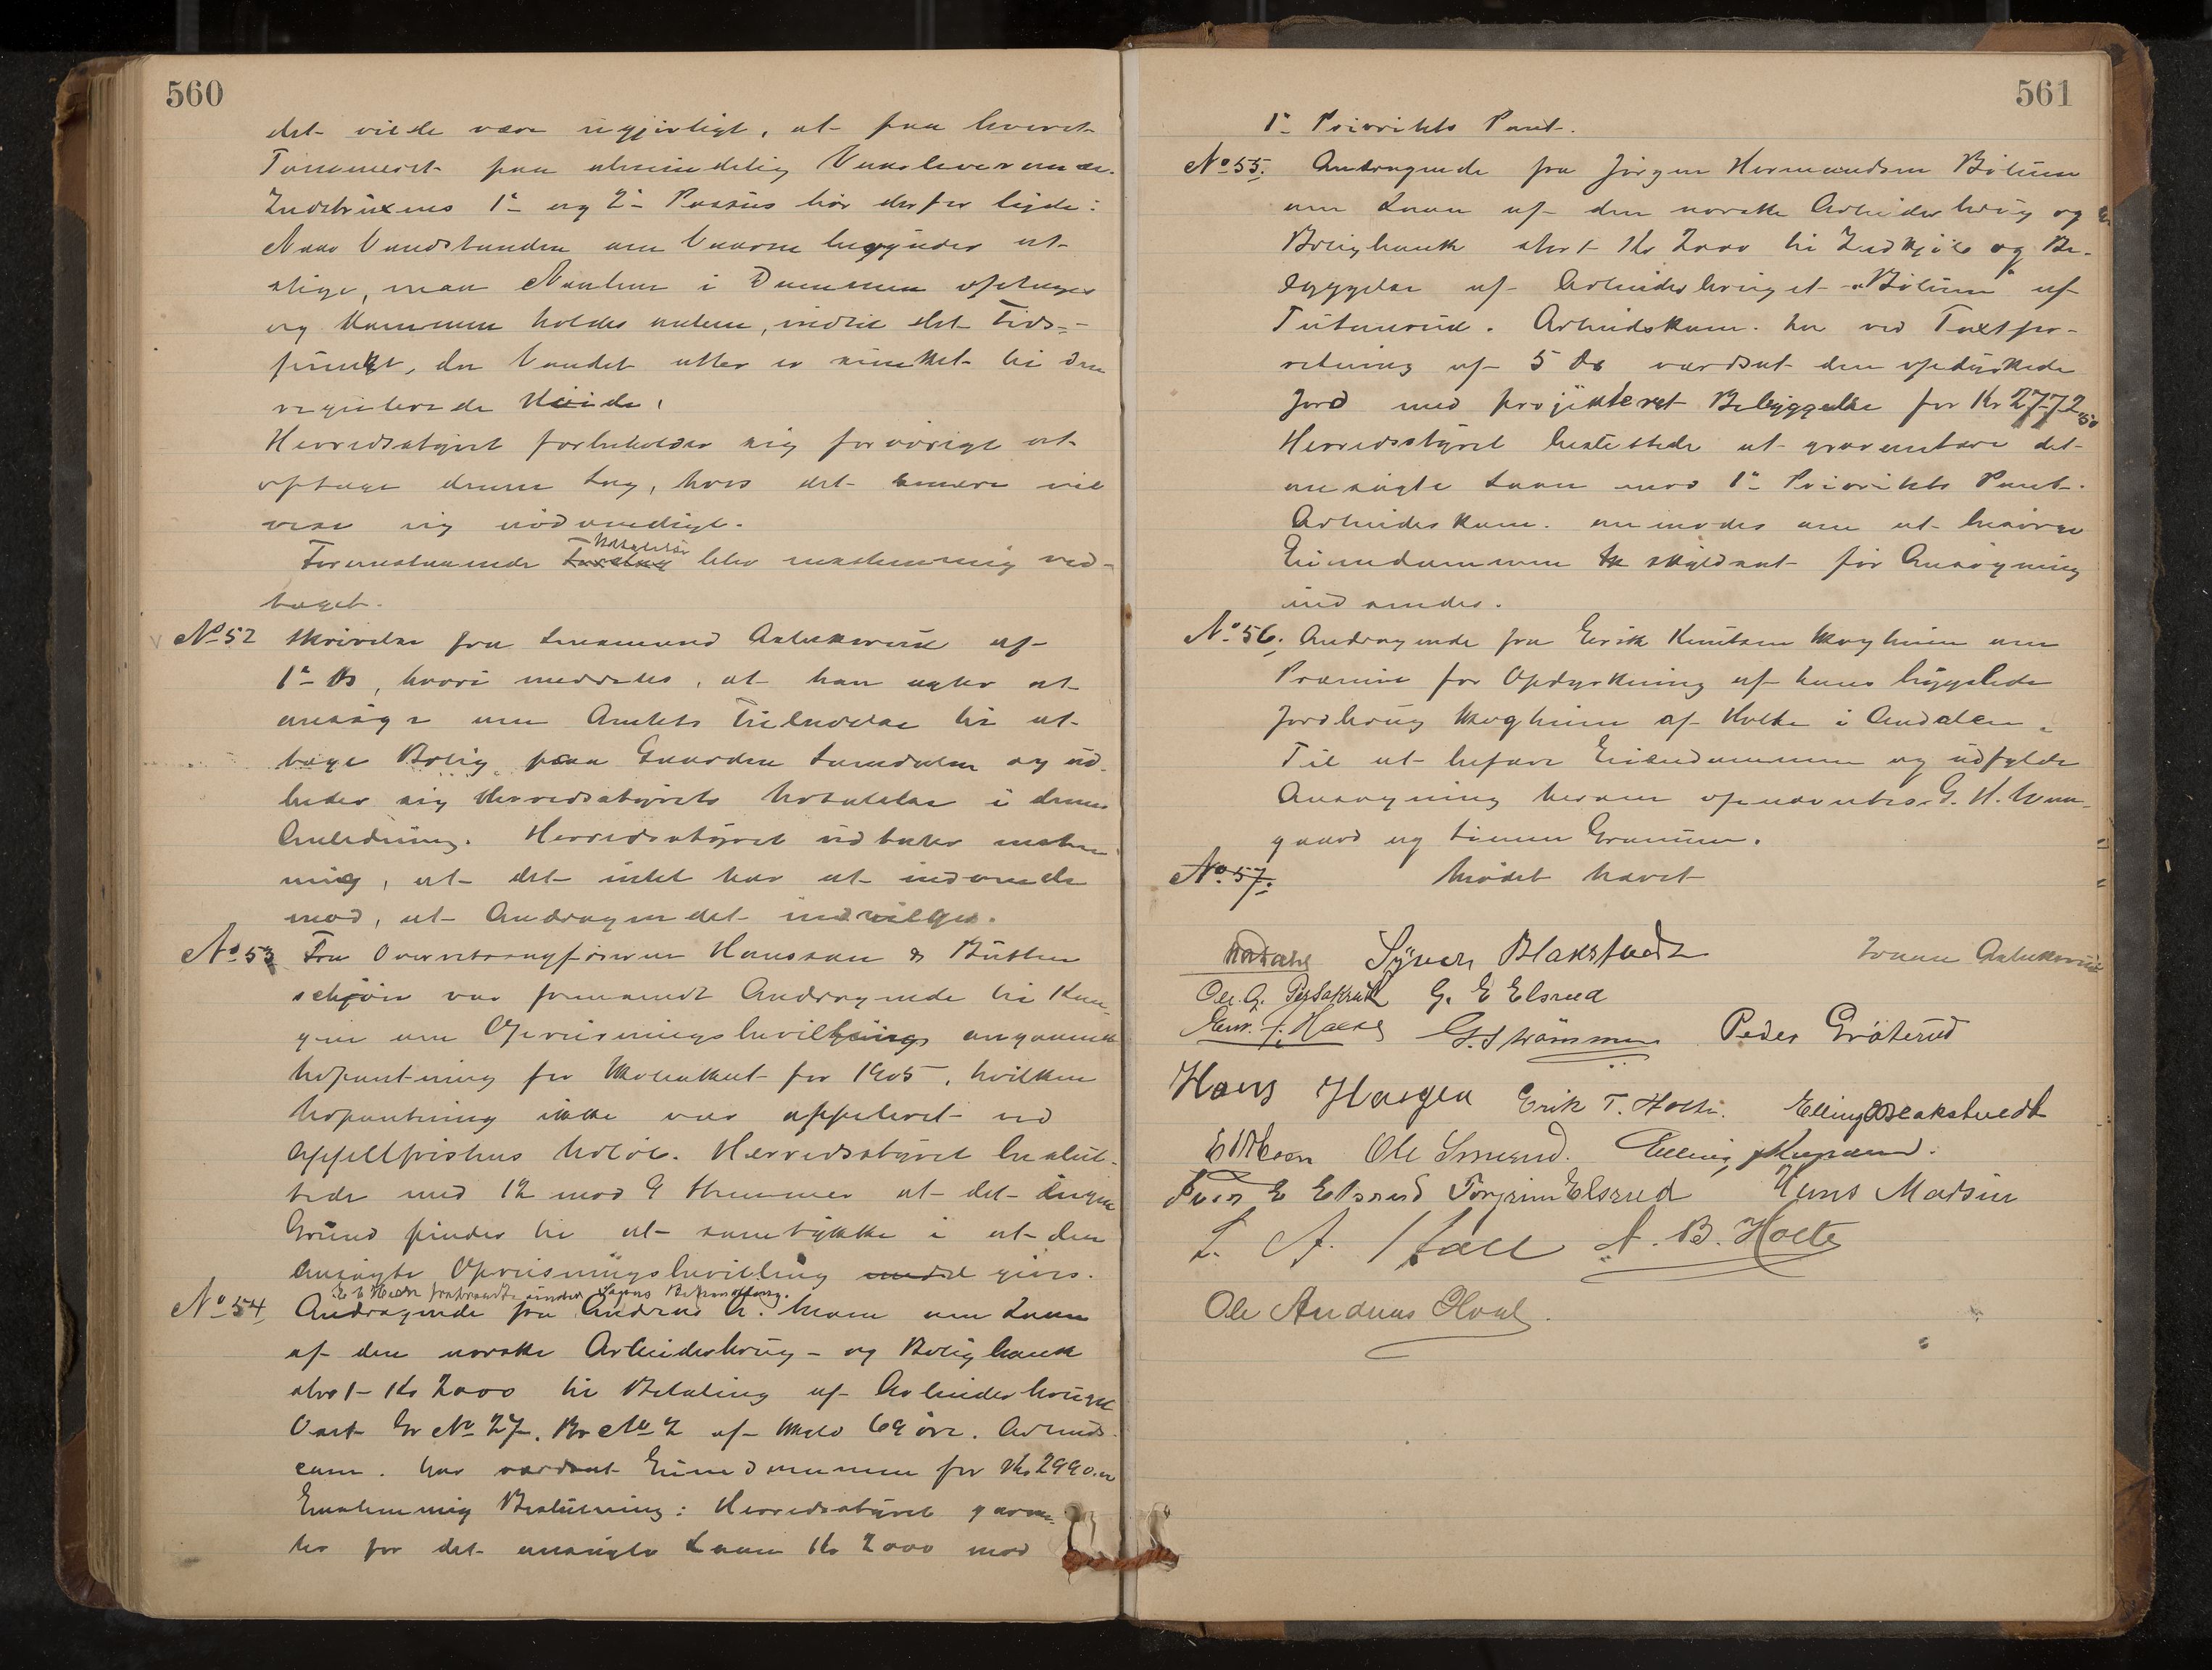 560
det vilde være ugjørligt, at faa levert
Tømmeret paa almindelig Vaarleverance.
Indstruxens 1ᵉ og 2ᵉ Passus bør derfor lyde:
Naar Vandstanden om Vaaren begynder at
stige, maa Naalene i Dammen optages
og Dammen holdes aaben, indtil det Tids-
punkt, da Vandet atter er sunket til den
regulerede Høide.
Herredsstyret forbeholder sig forøvrigt at
optage denne Sag, hvis det senere vil
vise sig nødvendigt.
Formestaaende Udtalelse blev enstemmig ved-
taget.
No 52 Skrivelse fra Lensmand Aslaksrud af
1ᵉ ds, hvori meddeles, at han agter at
ansøge om Amtets Tilladelse til at
tage Bolig paa Gaarden og ud-
beder sig Herredsstyrets Udtalelse i denne
Anledning. Herredsstyret udtaler enstem-
mig, at det intet har at indvende
mod, at Andragendet indvilges.
No 53 Fra Overretssagførerne Hansson &
schjøn var fremsendt Andragende til Kon-
gen om Opreisningsbevilling angaaende
Udpantning for Skoleskat for 1905, hvilken
Udpantning ikke var appelleret ved
Appellfristens Udløb. Herredsstyret beslut-
tede med 12 mod 9 Stemmer at det ingen
Grund finder til at samtykke i at den
ansøgte Opreisningsbevilling gives.
E E Hære fratraadte under Sagens Behandling.
No 54 Andragende fra Andreas A. Moen om Laan
af den norske Arbeiderbrug- og Boligbank
stort Kr 2000 til Betaling af Arbeiderbruget
Gr No 27, Br No 2 af Skyld 69 øre. Arbeids-
com. har værdsat Eiendommen for Kr 2990.
Enstemmig Beslutning: Herredsstyret garan-
ter for det ansøgte Laan Kr 2000 mod
561
1ᵉ Prioritets Pant.
No 55. Andragende fra Jørgen Hermandsen Bölum
om Laan af den norske Arbeiderbrug og
Boligbank stort Kr 2000 til Indkjøb og Be-
byggelse af Arbeiderbruget "Bölum" af
Tutumrud. Arbeidskom. har ved Taxtfor-
retning af 5 ds værdsat den opdyrkede
Jord med projekteret Bebyggelse for Kr 2772,50
Herredsstyret besluttede at garantere det
ansøgte Laan mod 1ᵉ Prioritets Pant.
Arbeideskom. anmodes om at besørge
Eiendommen skyldsat før Ansøgning
indsendes.
No 56. Andragende fra Erik Knutsen Skogheim om
Præmie for Opdyrkning af hans bygslede
Jordbrug Skogheim af Holte i Aadalen.
Til at befare Eiendommen og udfylde
Ansøgning herom opnævntes G. H.
gaard og Simen Granum.
No 57. Mødet hævet
Syver Blakstvedt
Aslaksrud
Ole. G. G. E Elsrud
G. Strømmen Peder Gröterud
Hans Haugen Erik T. Holte. Elling Blakstvedt
Ole Smerud. Elling
Iver E Elsrud Torgrim Elsrud Hans Madsen
L. A. N. B. Holte
Ole Andreas Hval.